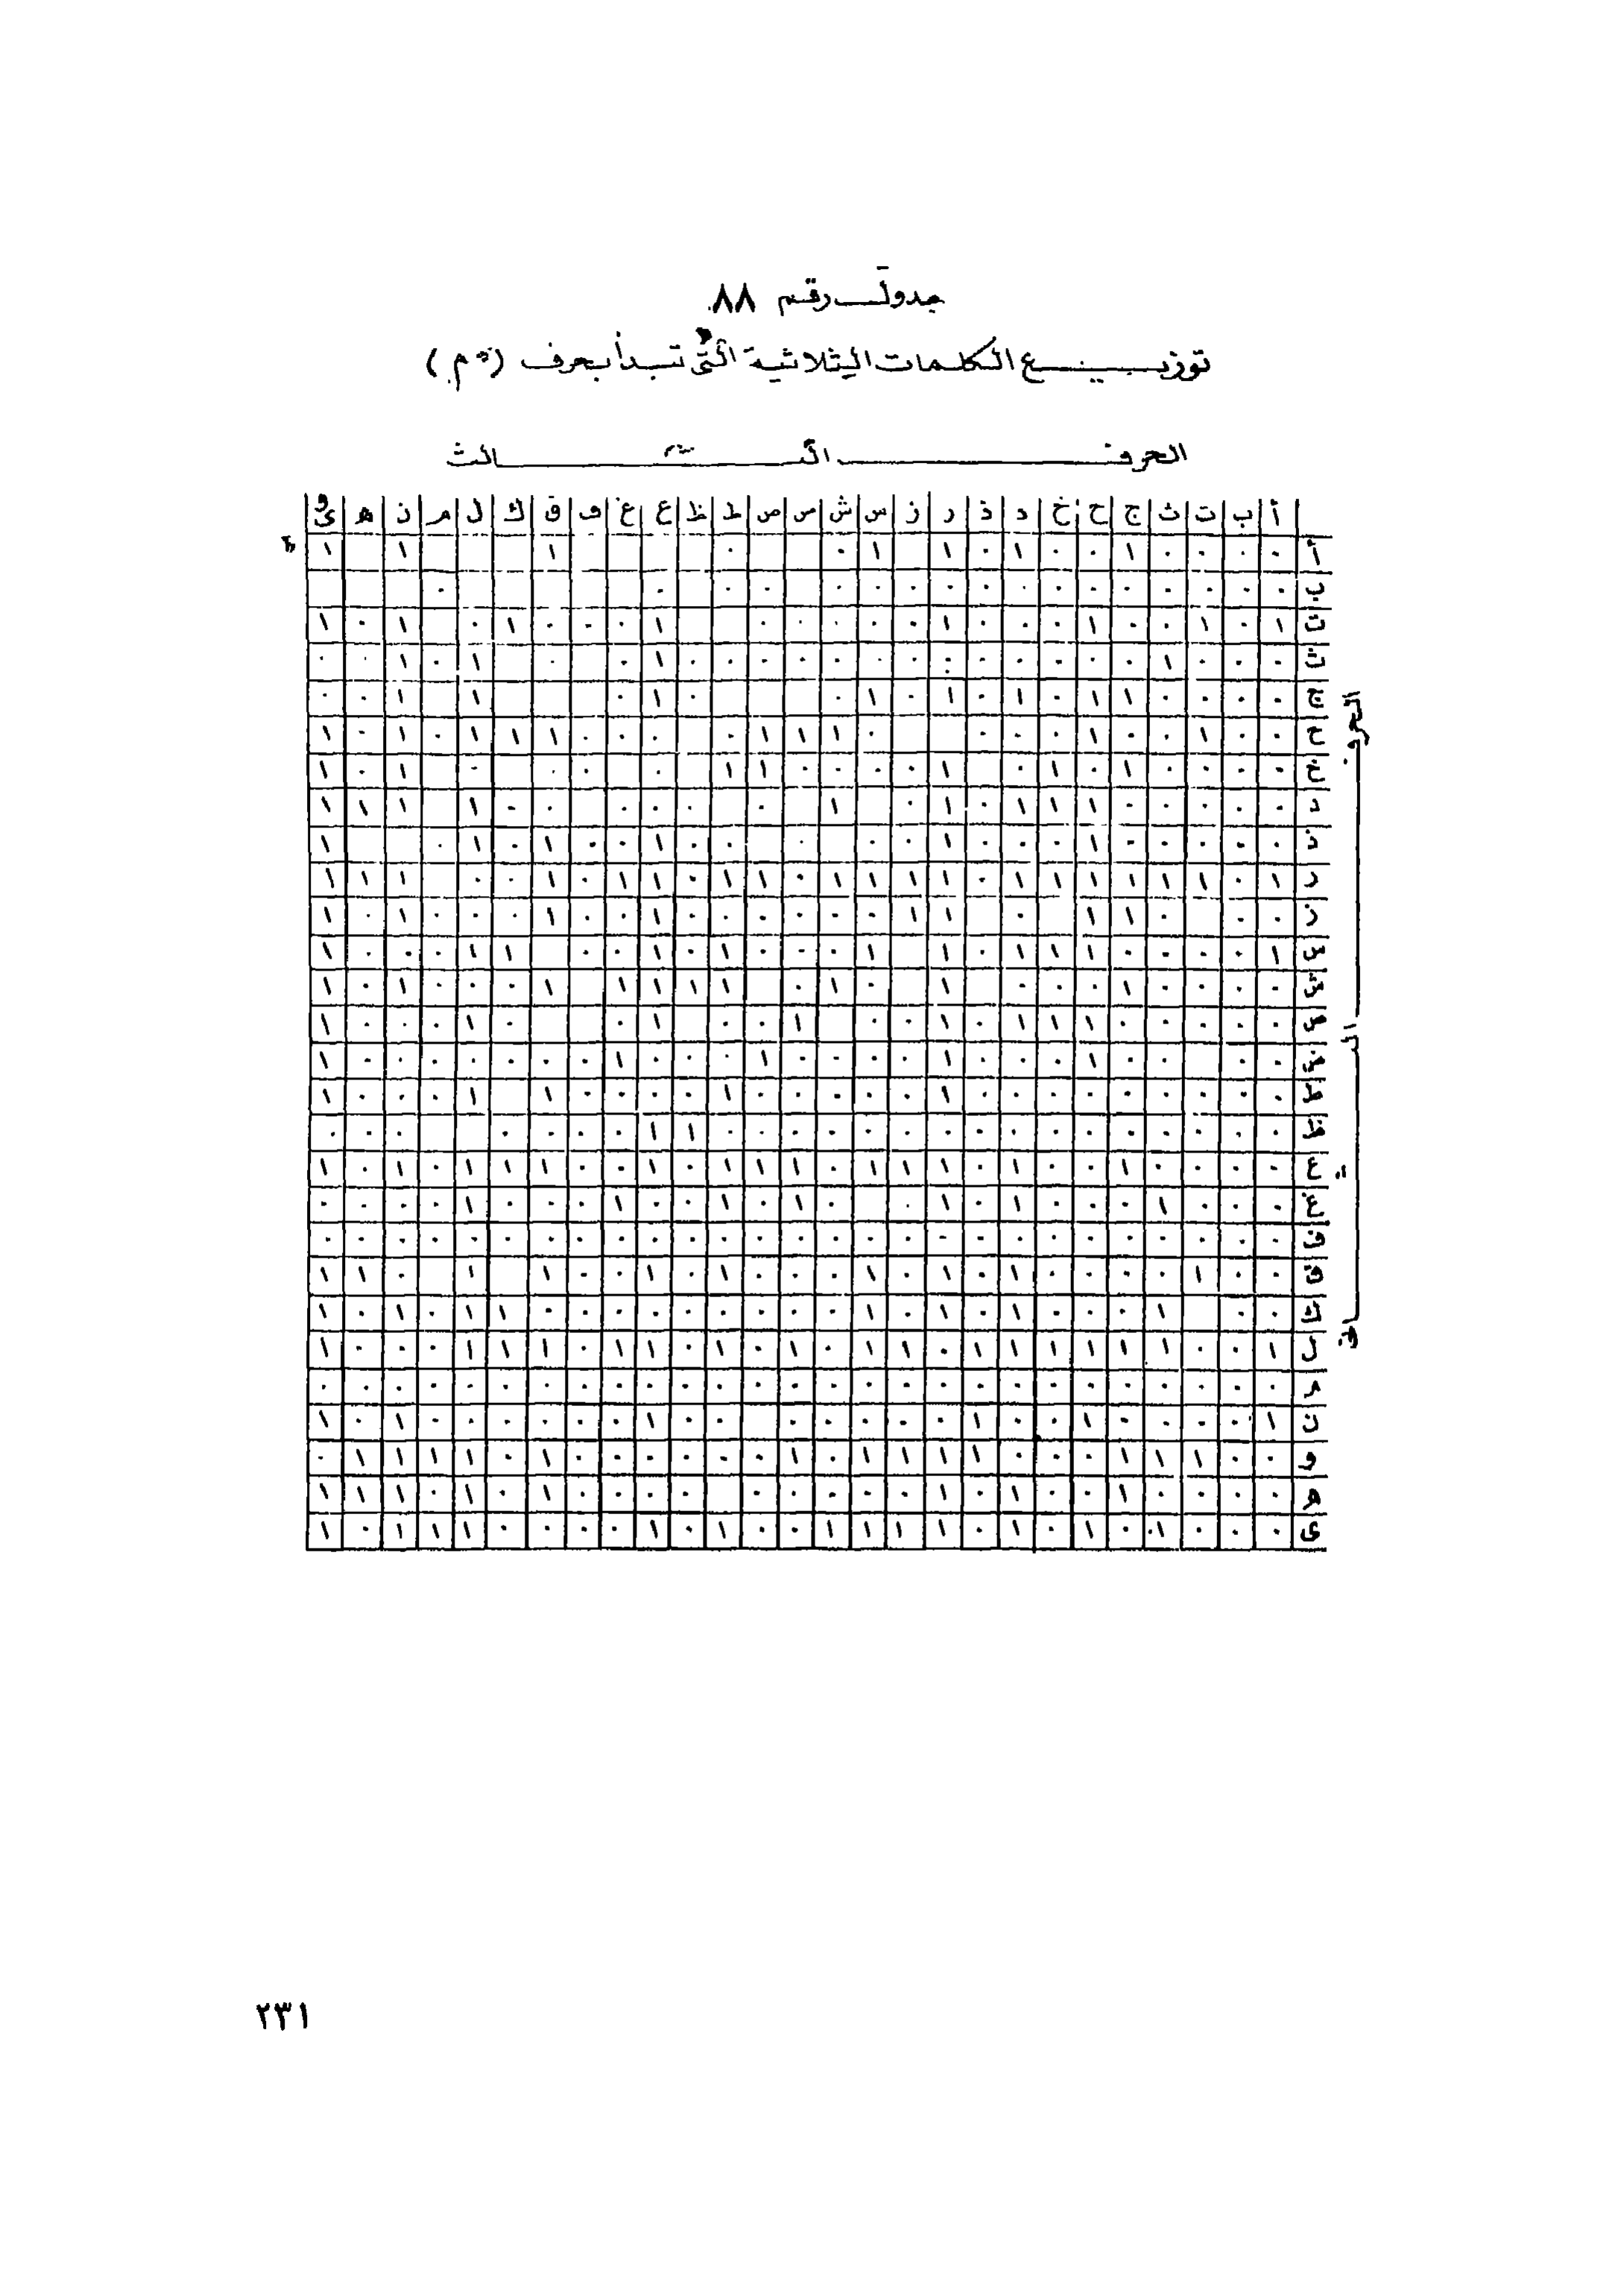 جدول رقم ٨٨
توزيع الكلمات الثلاثية التى تبدأ بحرف (م)
الحرف الثالث
أ ب ت ث ج ح خ د ذ ر ز س ش ص ض ط ظ ع غ ف ق ك ل م ن ه و ى
أ ٠ ٠ ٠ ٠ ١ ٠ ٠ ١ ٠ ١ ١ ٠ ٠ ١ ١ ١
ب ٠ ٠ ٠ ٠ ٠ ٠ ٠ ٠ ٠ ٠ ٠ ٠ ٠ ٠ ٠ ٠ ٠
ت ١ ٠ ١ ٠ ٠ ١ ٠ ٠ ٠ ١ ٠ ٠ ٠ ٠ ٠ ١ ٠ ٠ ٠ ١ ٠ ١ ٠ ١
ث ٠ ٠ ٠ ١ ٠ ٠ ٠ ٠ ٠ ٠ ٠ ٠ ٠ ٠ ٠ ٠ ٠ ١ ٠ ٠ ١ ٠ ١ ٠ ٠
ج ٠ ٠ ٠ ٠ ١ ١ ٠ ١ ٠ ١ ٠ ١ ٠ ٠ ١ ٠ ١ ١ ٠ ٠
ح ٠ ٠ ١ ٠ ٠ ١ ٠ ٠ ٠ ٠ ١ ١ ١ ٠ ٠ ٠ ٠ ١ ١ ١ ٠ ١ ٠ ١
خ ٠ ٠ ٠ ٠ ١ ٠ ١ ٠ ١ ٠ ٠ ٠ ٠ ١ ١ ٠ ٠ ٠ ٠ ١ ٠ ١
د ٠ ٠ ٠ ٠ ٠ ١ ١ ١ ٠ ١ ٠ ١ ٠ ٠ ٠ ٠ ٠ ٠ ١ ١ ١ ١
ذ ٠ ٠ ٠ ٠ ٠ ١ ٠ ٠ ٠ ١ ٠ ٠ ٠ ٠ ٠ ١ ٠ ٠ ١ ٠ ١ ٠ ١
ر ١ ٠ ١ ١ ١ ١ ١ ١ ٠ ١ ١ ١ ١ ٠ ١ ١ ٠ ١ ١ ٠ ١ ٠ ٠ ١ ١ ١
ز ٠ ٠ ٠ ١ ١ ٠ ١ ١ ٠ ٠ ٠ ٠ ٠ ٠ ١ ٠ ٠ ١ ٠ ٠ ٠ ١ ٠ ١
س ١ ٠ ٠ ٠ ٠ ١ ١ ١ ٠ ١ ١ ٠ ٠ ٠ ١ ٠ ١ ٠ ٠ ١ ١ ٠ ٠ ٠ ١
ش ٠ ٠ ٠ ٠ ١ ٠ ٠ ٠ ١ ٠ ١ ٠ ١ ١ ١ ١ ١ ٠ ٠ ٠ ١ ٠ ١
ص ٠ ٠ ٠ ٠ ٠ ١ ١ ١ ٠ ١ ٠ ٠ ١ ٠ ٠ ١ ٠ ٠ ١ ٠ ٠ ٠ ١
ض ٠ ٠ ٠ ٠ ١ ٠ ٠ ٠ ١ ٠ ٠ ٠ ٠ ١ ٠ ٠ ٠ ١ ٠ ٠ ٠ ٠ ٠ ٠ ٠ ١
ط ٠ ٠ ٠ ٠ ٠ ٠ ٠ ٠ ٠ ١ ٠ ٠ ٠ ٠ ٠ ١ ٠ ٠ ٠ ٠ ١ ١ ٠ ٠ ٠ ١
ظ ٠ ٠ ٠ ٠ ٠ ٠ ٠ ٠ ٠ ٠ ٠ ٠ ٠ ٠ ٠ ٠ ١ ١ ٠ ٠ ٠ ٠ ٠ ٠ ٠
ع ٠ ٠ ٠ ٠ ١ ٠ ٠ ١ ٠ ١ ١ ١ ٠ ١ ١ ١ ٠ ١ ٠ ٠ ١ ١ ١ ٠ ١ ٠ ١
غ ٠ ٠ ٠ ١ ٠ ٠ ٠ ١ ٠ ١ ٠ ٠ ١ ٠ ١ ٠ ٠ ١ ٠ ٠ ٠ ١ ٠ ٠ ٠ ٠
ف ٠ ٠ ٠ ٠ ٠ ٠ ٠ ٠ ٠ ٠ ٠ ٠ ٠ ٠ ٠ ٠ ٠ ٠ ٠ ٠ ٠ ٠ ٠ ٠ ٠ ٠ ٠
ق ٠ ٠ ١ ٠ ٠ ٠ ٠ ١ ٠ ١ ٠ ١ ٠ ٠ ٠ ١ ٠ ١ ٠ ٠ ١ ١ ٠ ١ ١
ك ٠ ٠ ١ ٠ ٠ ٠ ١ ٠ ١ ٠ ١ ٠ ٠ ٠ ٠ ٠ ٠ ٠ ٠ ٠ ١ ١ ٠ ١ ٠ ١
ل ١ ٠ ٠ ١ ١ ١ ١ ١ ١ ٠ ١ ١ ٠ ١ ٠ ١ ٠ ١ ١ ٠ ١ ١ ١ ٠ ٠ ٠ ١
م ٠ ٠ ٠ ٠ ٠ ٠ ٠ ٠ ٠ ٠ ٠ ٠ ٠ ٠ ٠ ٠ ٠ ٠ ٠ ٠ ٠ ٠ ٠ ٠ ٠ ٠ ٠
ن ١ ٠ ٠ ٠ ٠ ١ ٠ ٠ ١ ٠ ٠ ٠ ٠ ٠ ٠ ٠ ١ ٠ ٠ ٠ ٠ ٠ ٠ ١ ٠ ١
و ٠ ٠ ١ ١ ١ ٠ ٠ ٠ ١ ١ ١ ١ ٠ ١ ٠ ٠ ٠ ٠ ٠ ٠ ١ ٠ ١ ١ ١ ١ ٠
ه ٠ ٠ ٠ ٠ ١ ٠ ٠ ١ ٠ ١ ٠ ٠ ٠ ٠ ٠ ٠ ٠ ٠ ٠ ١ ٠ ١ ٠ ١ ١ ١
ى ٠ ٠ ٠ ١ ٠ ١ ٠ ١ ٠ ١ ١ ١ ١ ٠ ٠ ١ ٠ ١ ٠ ٠ ٠ ٠ ١ ١ ١ ٠ ١
الحرف الثانى
٢٣١